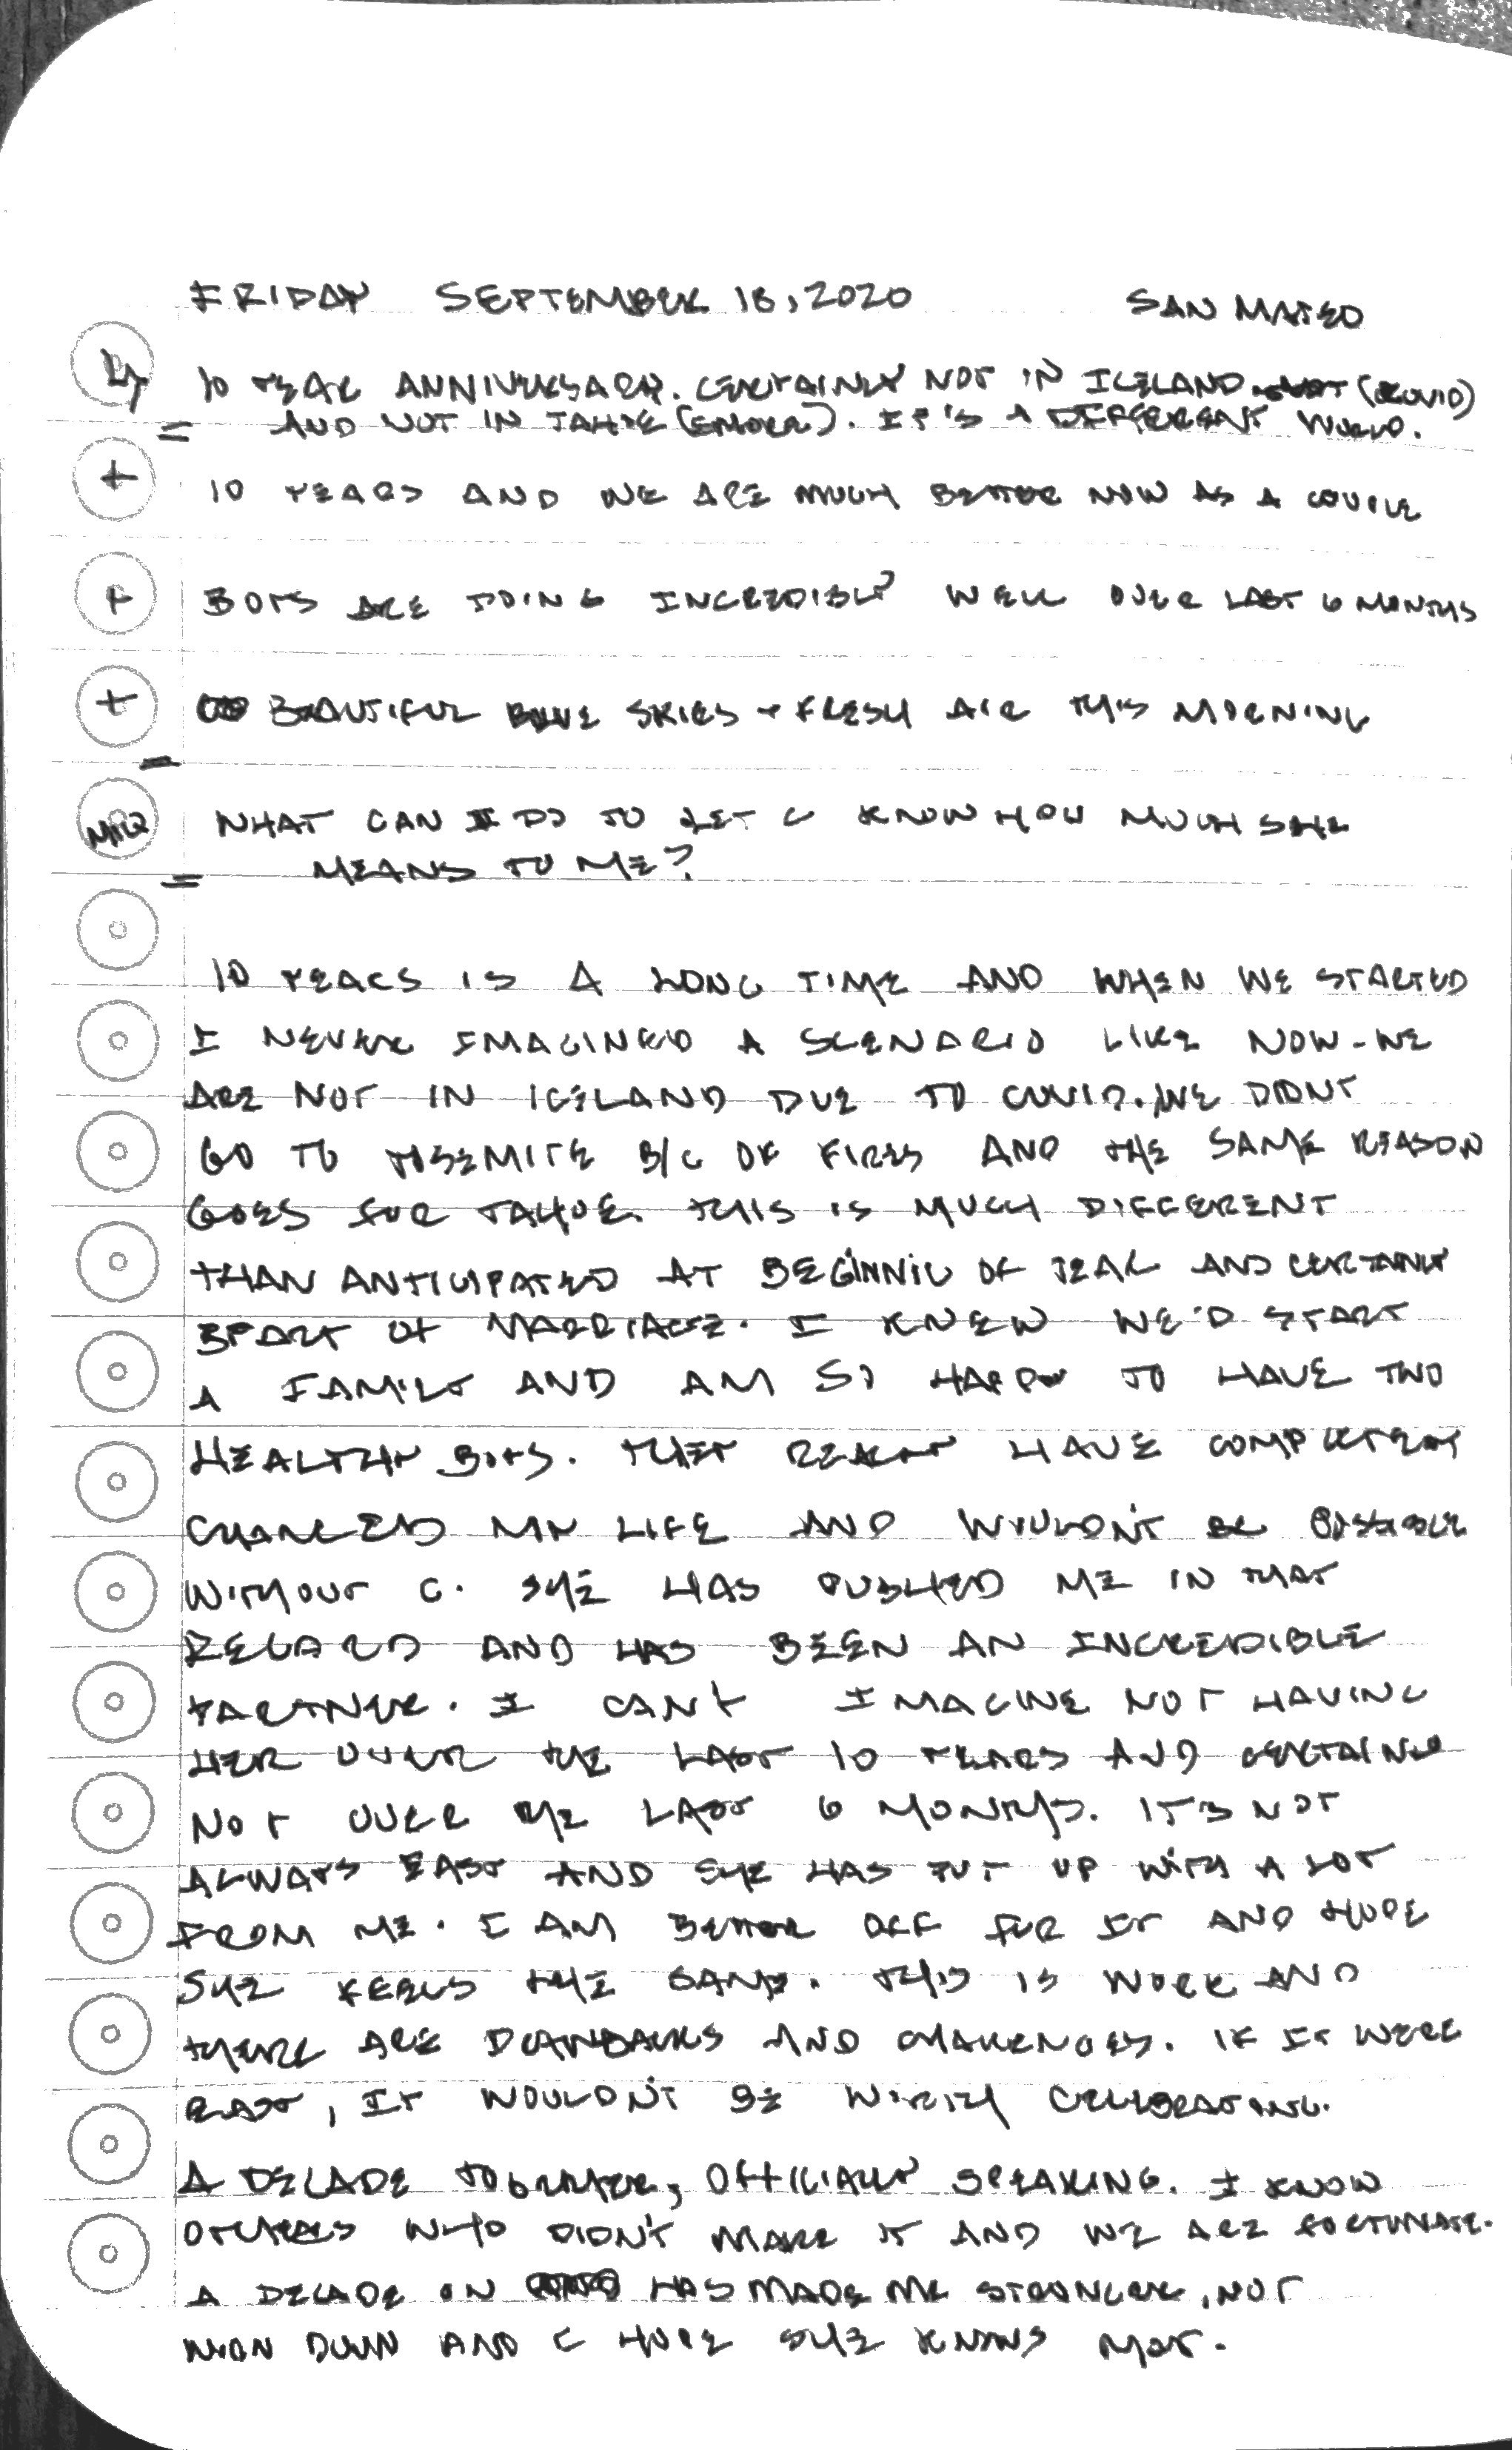 FRIDAY SEPTEMBER 18, 2020 SAN MATEO
10 YEAR ANNIVERSARY. CERTAINLY NOT IN ICELAND (COVID)
= AND NOT IN TAHOE (SMOKE). IT'S A DIFFERENT WORLD.
+ 10 YEARS AND WE ARE MUCH BETTER NOW AS A COUPLE
+ BOYS ARE DOING INCREDIBLY WELL OVER LAST 6 MONTHS
+ BEAUTIFUL BLUE SKIES + FRESH AIR THIS MORNING
=
WHAT CAN I DO TO LET C KNOW HOW MUCH SHE
= MEANS TO ME?
10 YEARS IS A LONG TIME AND WHEN WE STARTED
I NEVER IMAGINED A SCENARIO LIKE NOW - WE
ARE NOT IN ICELAND DUE TO COVID. WE DIDNT
GO TO YOSEMITE B/C OF FIRES AND THE SAME REASON
GOES FOR TAHOE. THIS IS MUCH DIFFERENT
THAN ANTICIPATED AT BEGINNIG OF YEAR AND CERTAINLY
OF MARRIAGE. I KNEW WE'D START
A FAMILY AND AM SO HAPPY TO HAVE TWO
HEALTHY BOYS. THEY REALLY HAVE COMPLETELY
CHANGED MY LIFE AND WOULDN'T BE POSSIBLE
WITHOUT C. SHE HAS PUSHED ME IN THAT
REGARD AND HAS BEEN AN INCREDIBLE
PARTNER. I CAN'T IMAGINE NOT HAVING
HER OVER THE LAST 10 YEARS AND CERTAINLY
NOT OVER THE LAST 6 MONTHS. IT'S NOT
ALWAYS EASY AND SHE HAS PUT UP WITH A LOT
FROM ME. I AM BETTER OFF FOR IT AND HOPE
SHE FEELS THE SAME. THIS IS WORK AND
THERE ARE DRAWBACKS AND CHALLENGES. IF IT WERE
EASY, IT WOULDN'T BE WORTH CELEBRATING.
A DECADE TOGETHER, OFFICIALLY SPEAKING. I KNOW
OTHERS WHO DIDN'T MAKE IT AND WE ARE FORTUNATE.
A DECADE ON HAS MADE ME STRONGER, NOT
WORN DOWN AND I HOPE SHE KNOWS THAT.